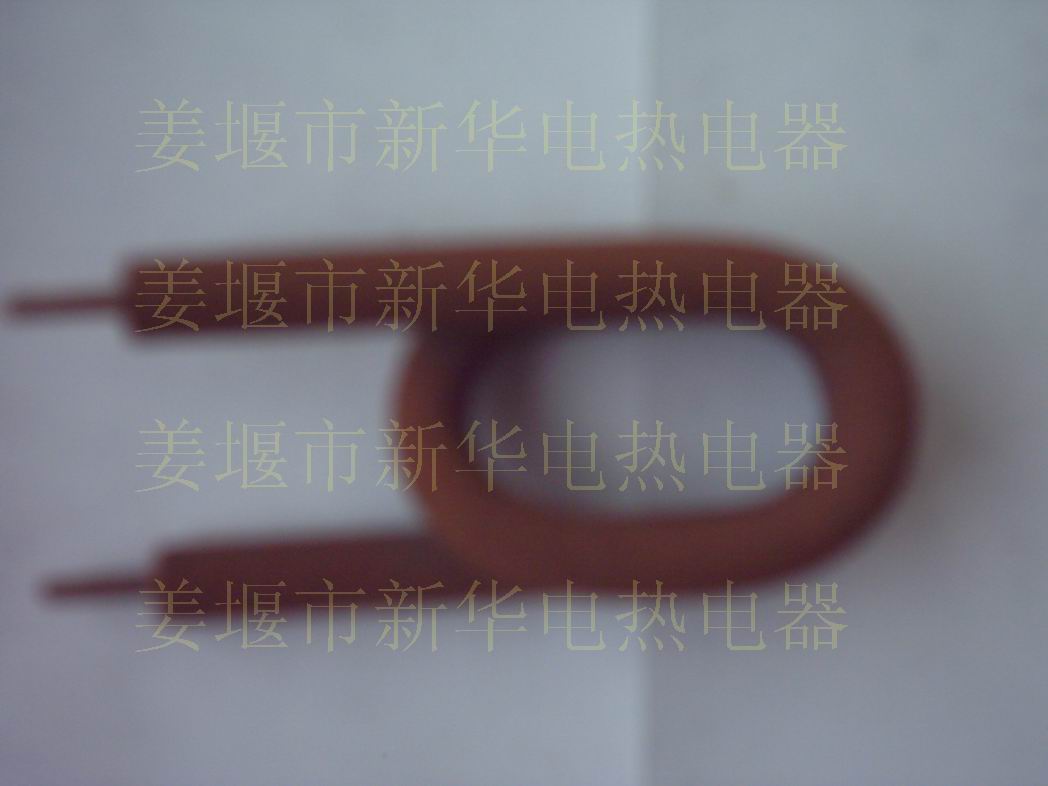 姜堰市新华电热电器
姜堰市新华电热电器
姜堰市新华电热电器
姜堰市新华电热电器